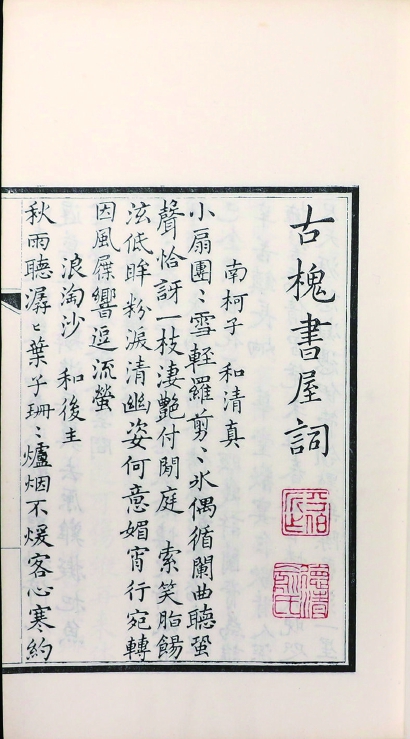 古槐書屋詞
德清俞氏
南柯子 和清真
小扇團〻雪輕羅剪〻冰偶循闌曲聽蛩
聲恰訝一枝淒艷付閒庭 索笑脂餳
泫低眸粉淚清幽姿何意媚宵行宛轉
因風屧響逗流螢
浪淘沙 和後主
秋雨聽潺〻葉子珊〻爐烟不煖客心寒約